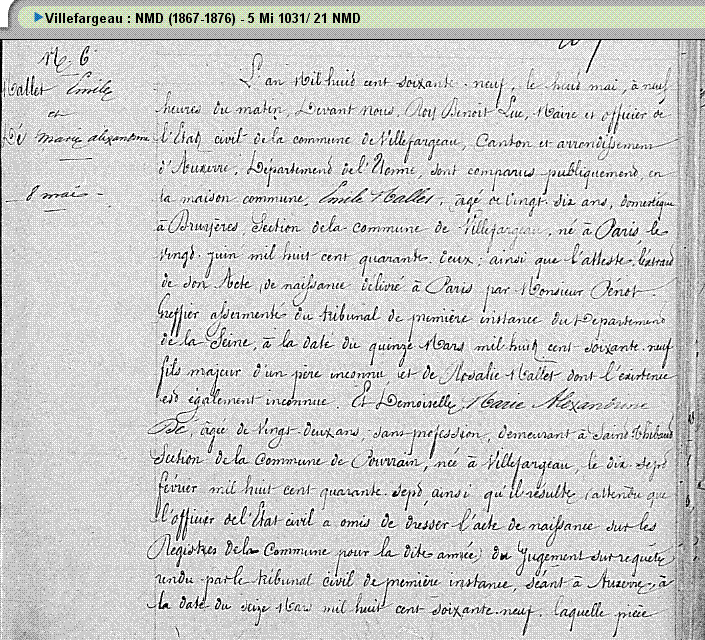 Villefargeau : NMD (1867-1876) - 5 Mi 1031/ 21 NMD
N. 6
Mallet Emile
et
Dé Marie alexandrine
8 mai
L'an Mil huit cent soixante-neuf, le huit mai, à neuf
heures du matin, Devant nous, Roy Benoit Luc, Maire et officier de
l'Etat civil de la commune de Villefargeau, Canton et arrondissement
d'Auxerre, Département de l'Yonne, sont comparus publiquement en
la maison commune, Emile Mallet, âgé de vingt-six ans, domestique
à Bruyères, Section de la commune de Villefargeau, né à Paris, le
vingt juin mil huit cent quarante-deux; ainsi que l'atteste l'extrait
de son Acte de naissance délivré à Paris par Monsieur Pénot
Greffier assermenté du tribunal de première instance du Département
de la Seine, à la date du quinze Mars mil huit cent soixante-neuf
fils majeur d'un père inconnu, et de Rosalie Mallet dont l'existence
est également inconnue. Et Demoiselle Marie Alexandrine
Dé, âgée de vingt-deux ans, sans profession, demeurant à Saint Thibaud
Section de la Commune de Pourrain, née à Villefargeau, le dix-sept
février mil huit cent quarante-sept, ainsi qu'il résulte (attendu que
l'officier de l'Etat civil a omis de dresser l'acte de naissance sur les
Registres de la Commune pour la dite année) du Jugement sur requête
rendu par le tribunal civil de première instance, séant à Auxerre, à
la date du seize Mars mil huit cent soixante-neuf, laquelle pièce